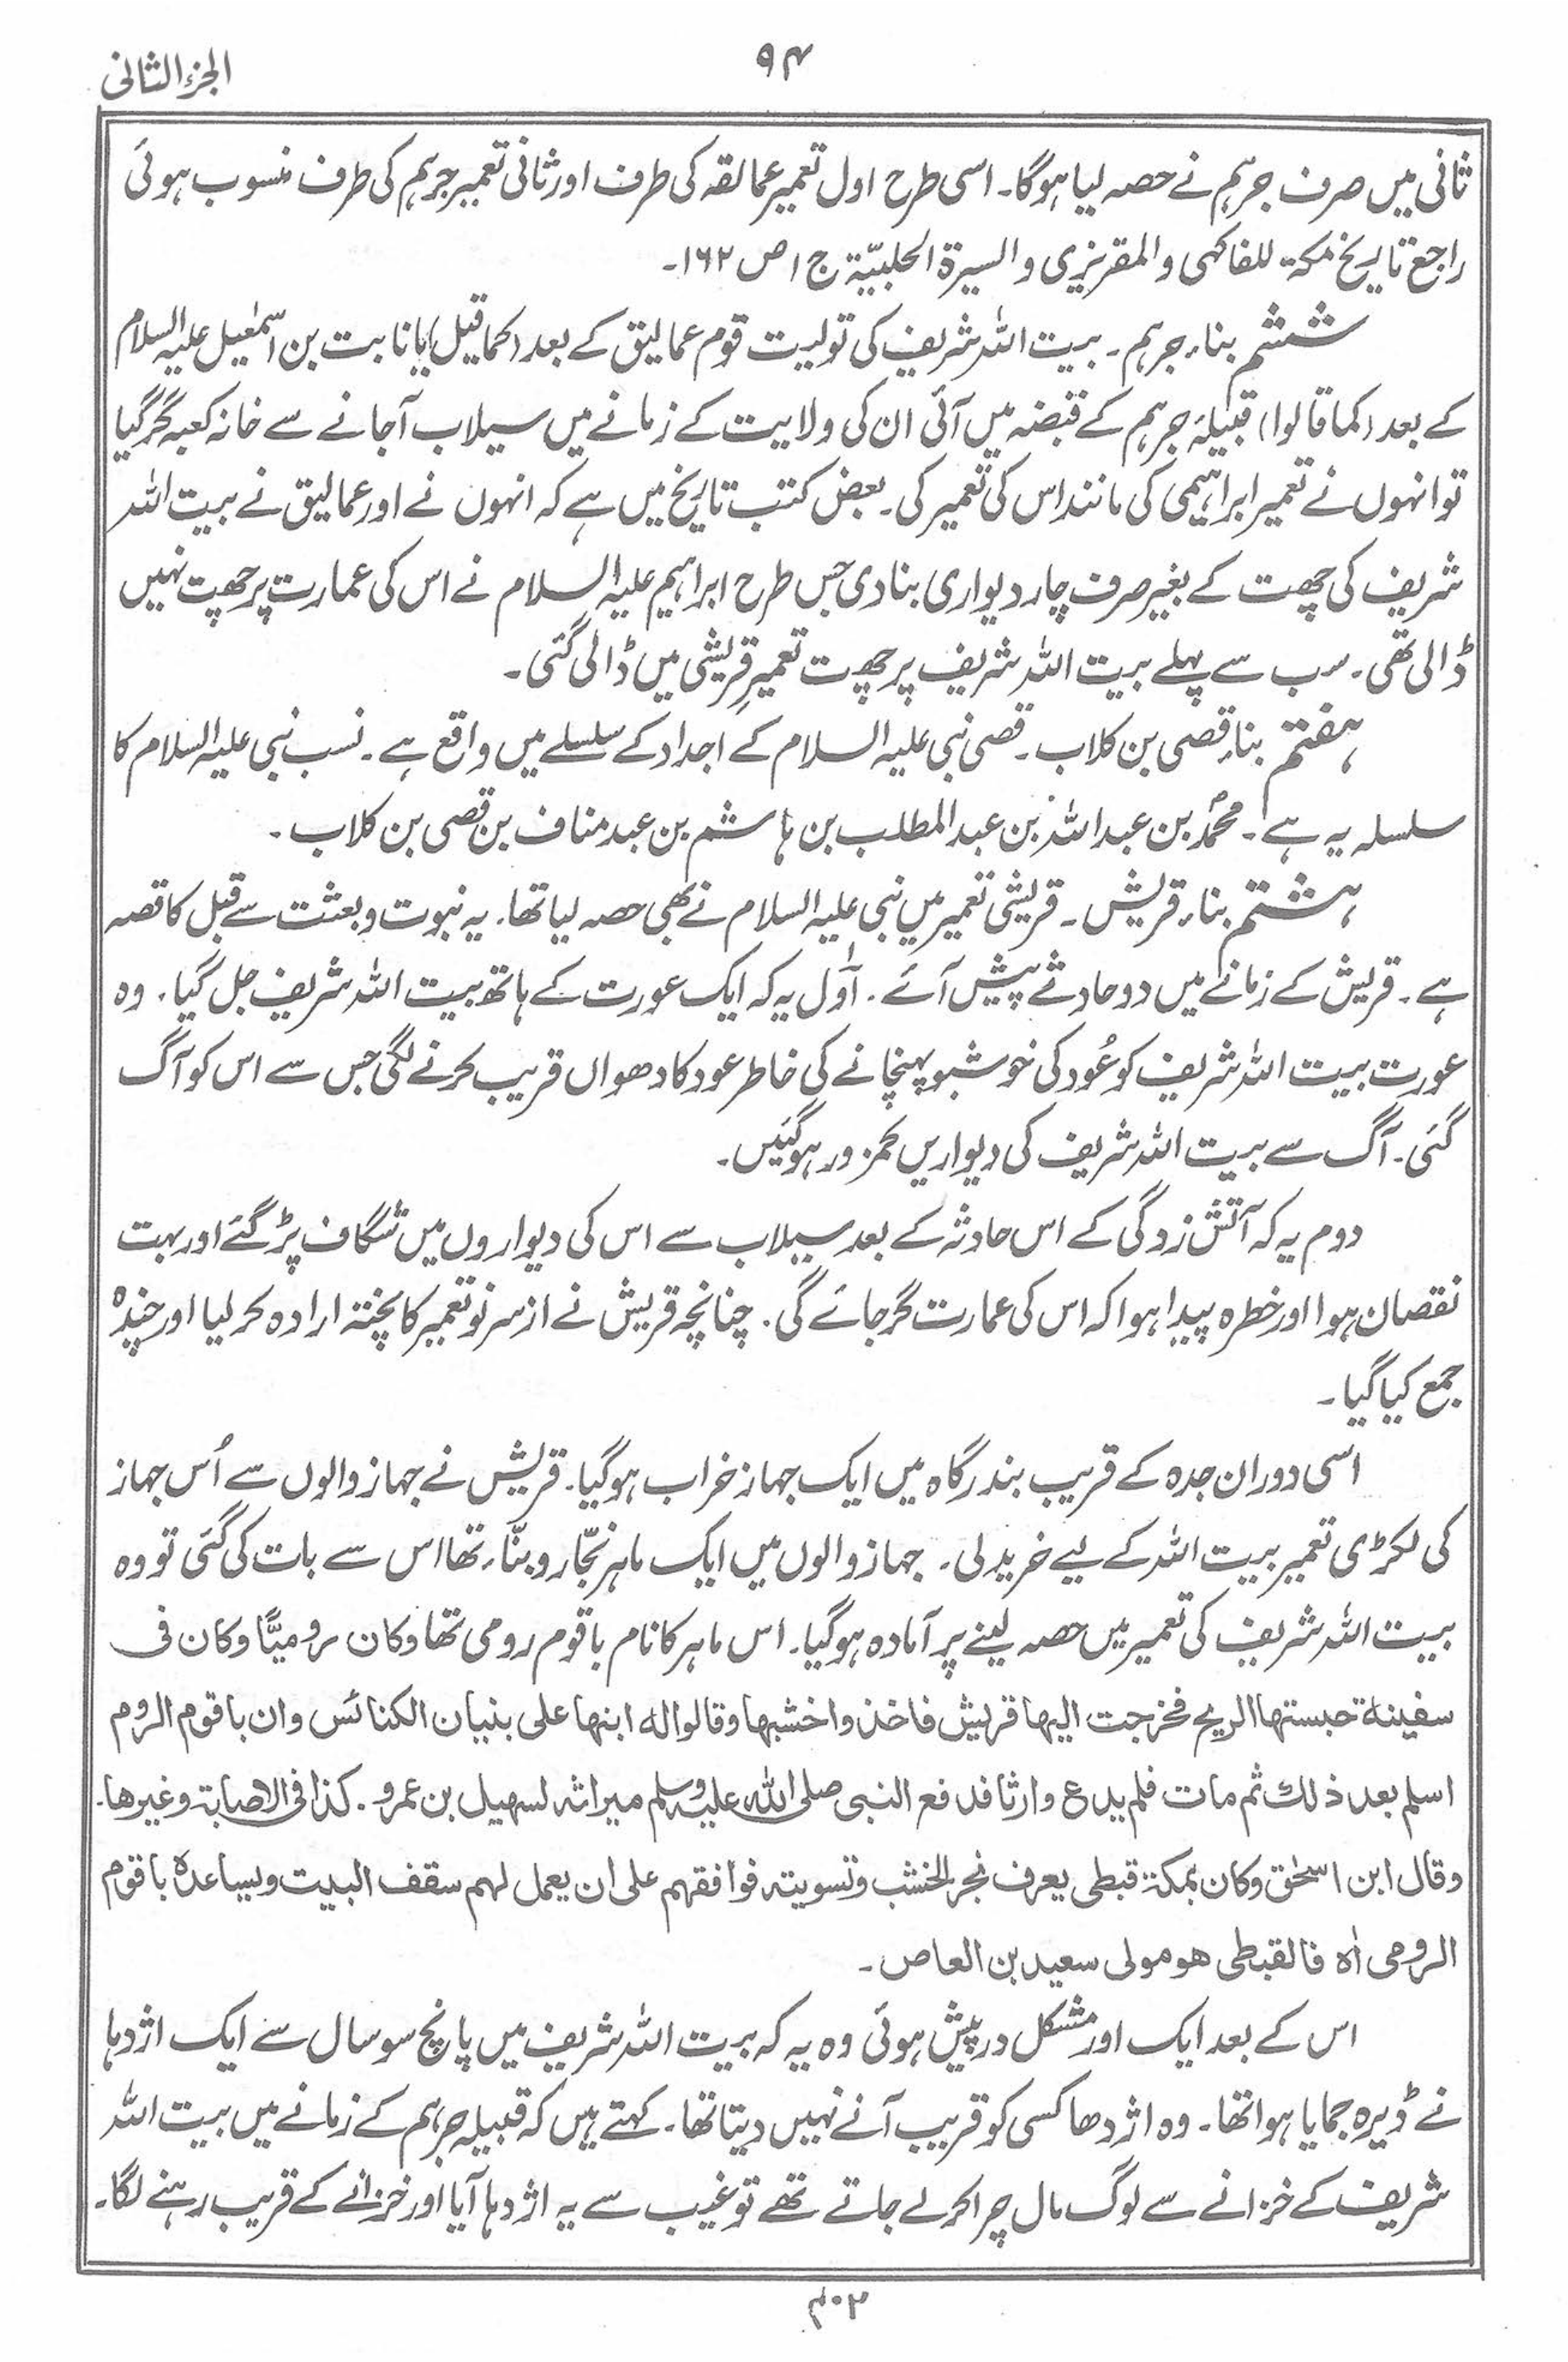 الجزء الثانی
۹۴
ثانی میں صرف جرہم نے حصہ لیا ہوگا۔ اسی طرح اول تعمیر عمالقہ کی طرف اور ثانی تعمیر جرہم کی طرف منسوب ہوئی
راجع تاریخ مکۃ للفاکھی والمقریزی والسیرۃ الحلبیّۃ ج ۱ ص ۱۶۲۔
ششم بناء جرہم۔ بیت اللہ شریف کی تولیت قوم عمالیق کے بعد (کما قیل) یا نابت بن اسمٰعیل علیہ السلام
کے بعد (کما قالوا) قبیلۂ جرہم کے قبضہ میں آئی ان کی ولایت کے زمانے میں سیلاب آجانے سے خانہ کعبہ گر گیا
تو انہوں نے تعمیر ابراہیمی کی مانند اس کی تعمیر کی۔ بعض کتب تاریخ میں ہے کہ انہوں نے اور عمالیق نے بیت اللہ
شریف کی چھت کے بغیر صرف چار دیواری بنادی جس طرح ابراہیم علیہ السلام نے اس کی عمارت پر چھت نہیں
ڈالی تھی۔ سب سے پہلے بیت اللہ شریف پر چھت تعمیرِ قریشی میں ڈالی گئی۔
ہفتم بناء قصی بن کلاب۔ قصی نبی علیہ السلام کے اجداد کے سلسلے میں واقع ہے۔ نسب نبی علیہ السلام کا
سلسلہ یہ ہے۔ محمدؐ بن عبد اللہ بن عبد المطلب بن ہاشم بن عبد مناف بن قصی بن کلاب۔
ہشتم بناء قریش۔ قریشی تعمیر میں نبی علیہ السلام نے بھی حصہ لیا تھا۔ یہ نبوت و بعثت سے قبل کا قصہ
ہے۔ قریش کے زمانے میں دو حادثے پیش آئے۔ اوّل یہ کہ ایک عورت کے ہاتھ بیت اللہ شریف جل گیا۔ وہ
عورت بیت اللہ شریف کو عُود کی خوشبو پہنچانے کی خاطر عود کا دھواں قریب کرنے لگی جس سے اس کو آگ
گئی۔ آگ سے بیت اللہ شریف کی دیواریں کمزور ہوگئیں۔
دوم یہ کہ آتش زدگی کے اس حادثہ کے بعد سیلاب سے اس کی دیواروں میں شگاف پڑ گئے اور بہت
نقصان ہوا اور خطرہ پیدا ہوا کہ اس کی عمارت گر جائے گی۔ چنانچہ قریش نے از سر نو تعمیر کا پختہ ارادہ کر لیا اور چندہ
جمع کیا گیا۔
اسی دوران جدہ کے قریب بندرگاہ میں ایک جہاز خراب ہوگیا۔ قریش نے جہاز والوں سے اُس جہاز
کی لکڑی تعمیر بیت اللہ کے لیے خرید لی۔ جہاز والوں میں ایک ماہر نجّار و بنّاء تھا اس سے بات کی گئی تو وہ
بیت اللہ شریف کی تعمیر میں حصہ لینے پر آمادہ ہوگیا۔ اس ماہر کا نام باقوم رومی تھا وکان رومیًّا وکان فی
سفینۃ حبستھا الریح فخرجت الیھا قریش فاخذوا خشبھا وقالوا لہ ابنھا علی بنیان الکنائس وان باقوم الروم
اسلم بعد ذلک ثم مات فلم یدع وارثا فدفع النبی صلی اللہ علیہ وسلم میراثہ لسھیل بن عمرو۔ کذا فی الاصابۃ وغیرھا۔
وقال ابن اسحٰق وکان بمکۃ قبطی یعرف نجر الخشب وتسویتہ فوافقھم علی ان یعمل لھم سقف البیت ویساعدہ باقوم
الرومی اہ فالقبطی ھو مولی سعید بن العاص۔
اس کے بعد ایک اور مشکل درپیش ہوئی وہ یہ کہ بیت اللہ شریف میں پانچ سو سال سے ایک اژدہا
نے ڈیرہ جمایا ہوا تھا۔ وہ اژدھا کسی کو قریب آنے نہیں دیتا تھا۔ کہتے ہیں کہ قبیلہ جرہم کے زمانے میں بیت اللہ
شریف کے خزانے سے لوگ مال چرا کر لے جاتے تھے تو غیب سے یہ اژدہا آیا اور خزانے کے قریب رہنے لگا۔